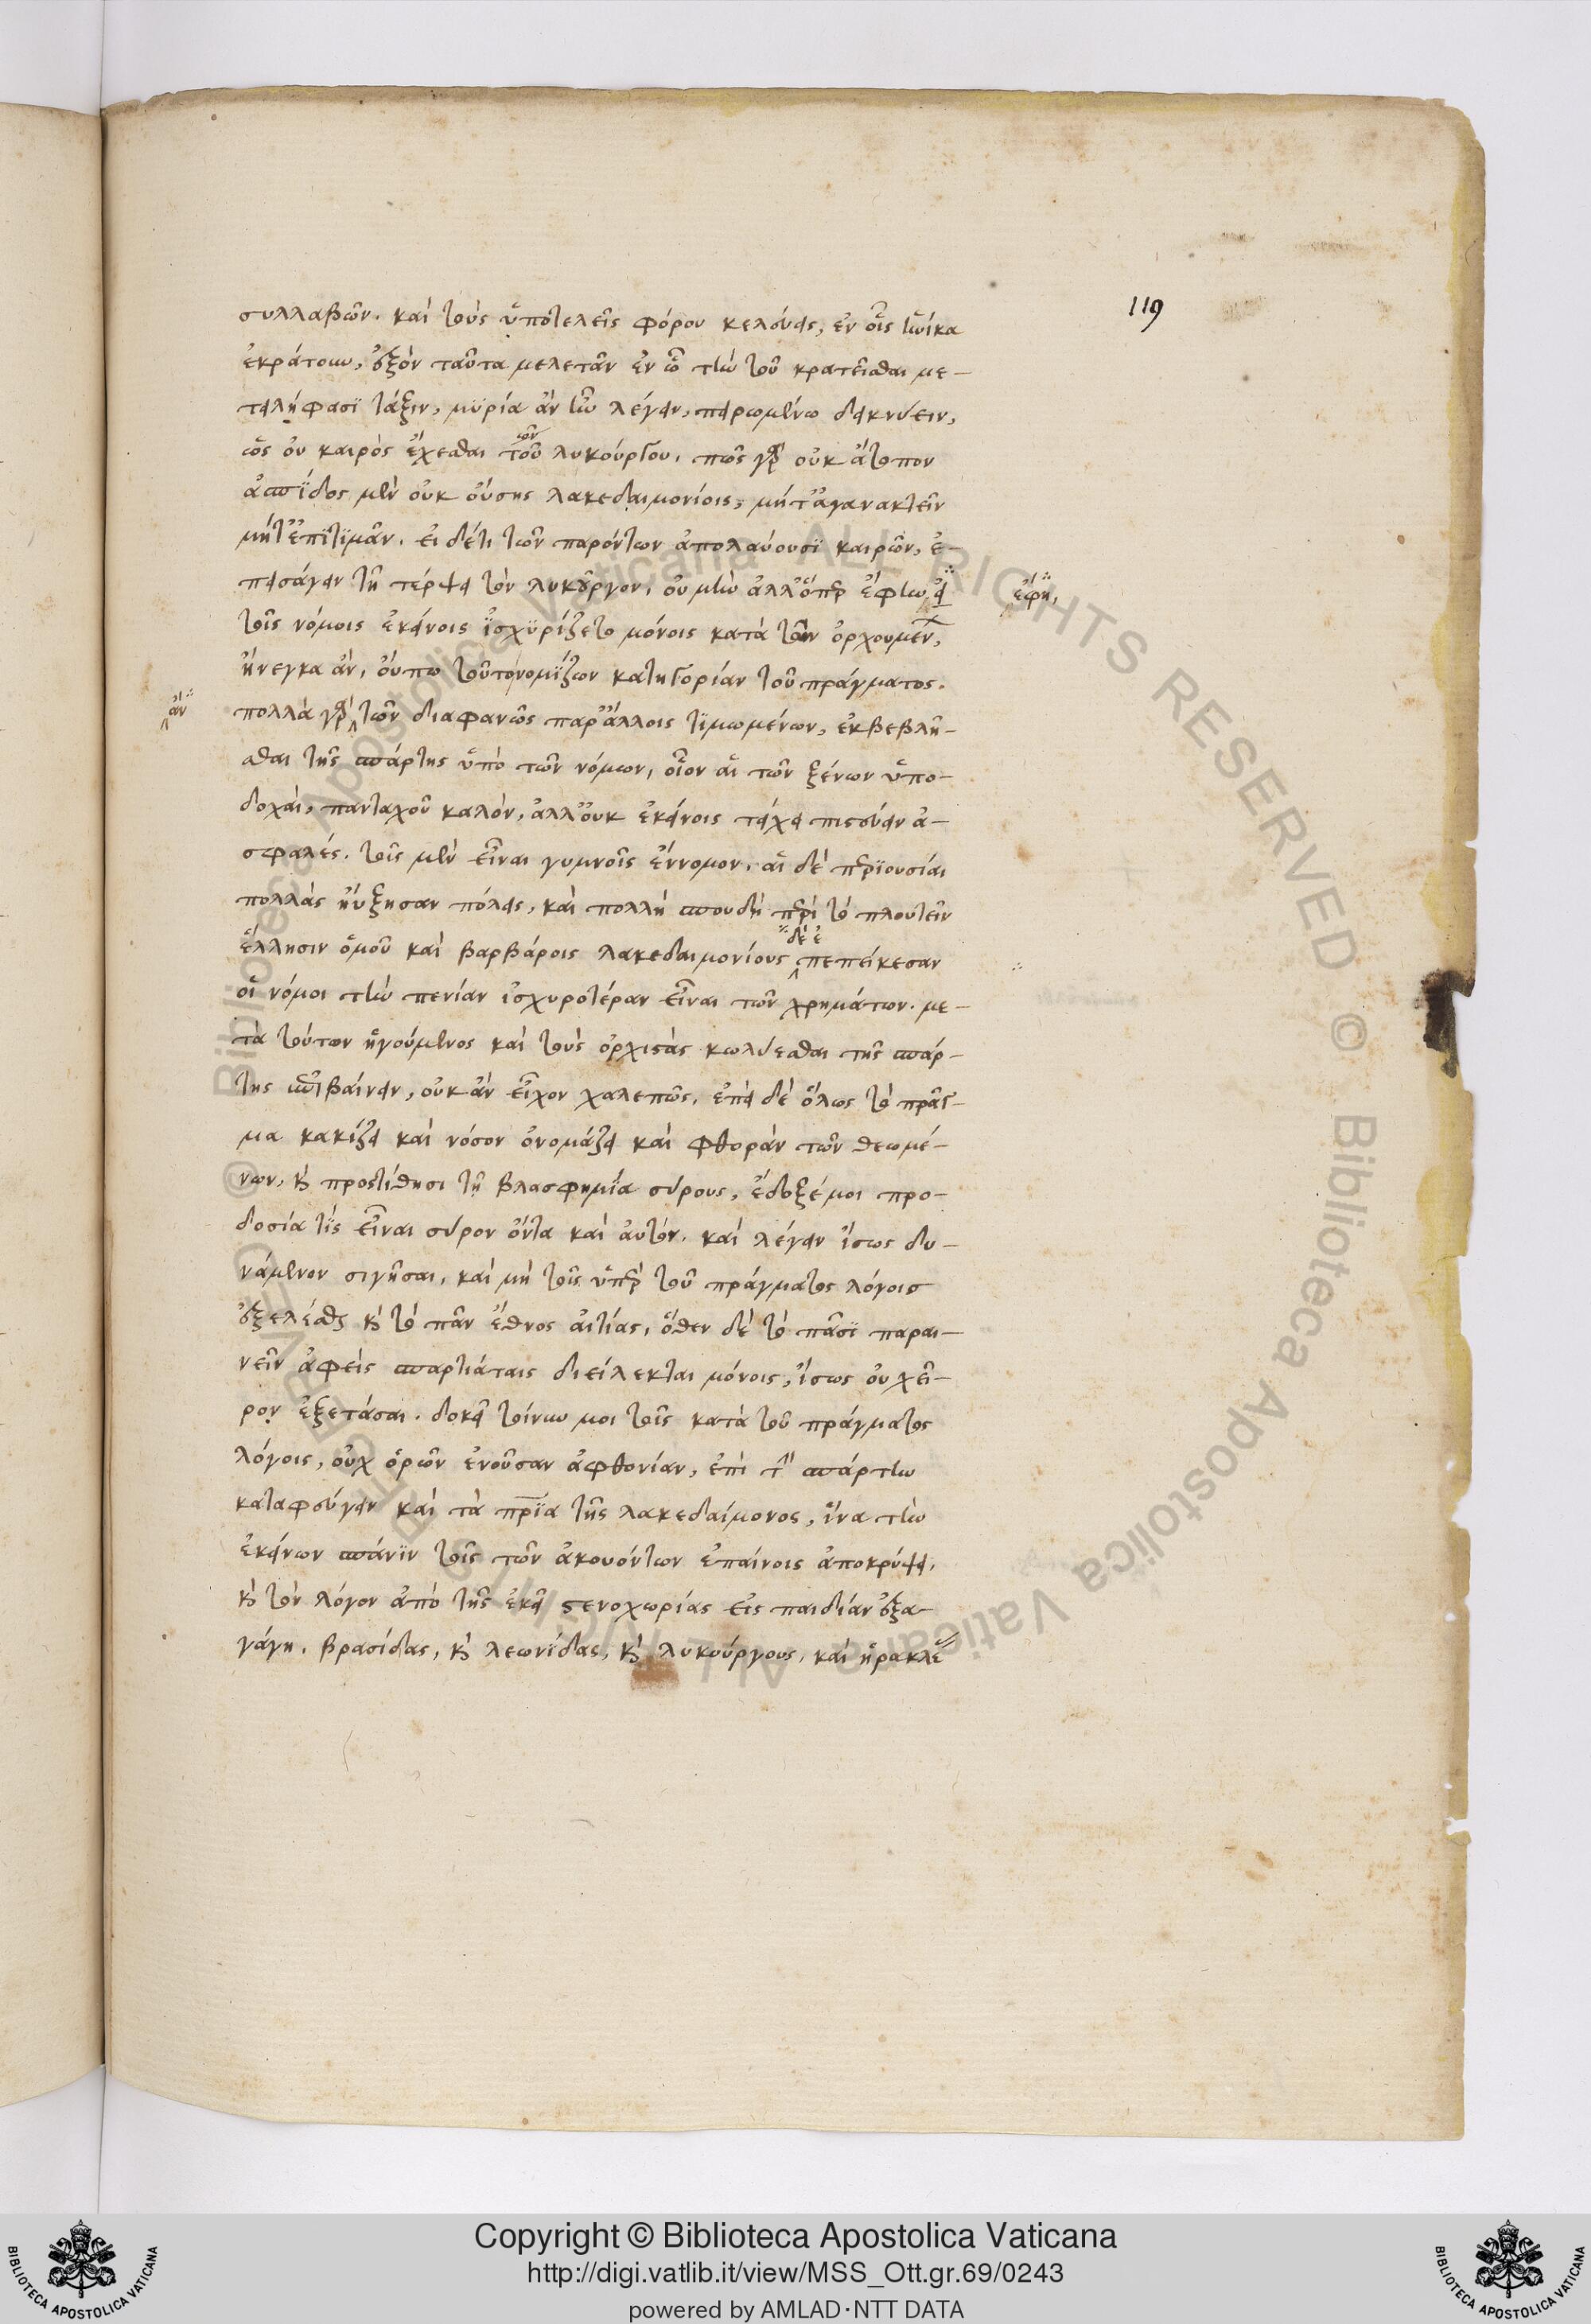 119
συλλαβῶν. καὶ τοὺς ὑποτελεῖς φόρου κελεύεις, ἐν οἷς ἡνίκα
ἐκράτουν, ἐξὸν ταῦτα μελετᾶν ἐν ᾧ τὴν τοῦ κρατεῖσθαι με-
τειλήφασϊ τάξιν, μϋρία ἂν ἦν λέγειν, πειρωμένω δεικνύειν,
ὡς οὐ καιρὸς ἔχεσθαι τοῦ ῶν λυκούργου. πῶς γὰρ οὐκ ἄτοπον
ἀσπϊδος μὲν οὐκ οὔσης λακεδαιμονίοις, μήτ' ἀγανακτεῖν
μήτ' ἐπϊτϊμᾶν. εἰ δέ τι τῶν παρόντων ἀπολαύουσϊ καιρῶν, ἐ-
πεισάγειν τῆ τέρψει τὸν λυκοῦργον. οὐ μὴν ἀλλ' ὅπερ ἔφην, εἰ
ἔφη,
τοῖς νόμοις ἐκείνοις ἰσχϋρίζετο μόνοις κατὰ τῶν ὀρχουμένων,
ἤνεγκα ἄν, οὔπω τοῦτο νομίζων κατηγορίαν τοῦ πράγματος.
ἂν
πολλὰ γὰρ τῶν διαφανῶς παρ' ἄλλοις τϊμωμένων, ἐκβεβλῆ-
σθαι τῆς σπάρτης ὑπὸ τῶν νόμων, οἷον αἱ τῶν ξένων ὑπο-
δοχαί, πανταχοῦ καλόν, ἀλλ' οὐκ ἐκείνοις τείχει πιστεύειν ἀ-
σφαλές. τοῖς μὲν εἶναι γυμνοῖς ἔννομον. αἱ δὲ περϊουσίαι
πολλὰς ηὔξησαν πόλεις, καὶ πολλὴ σπουδὴ περὶ τὸ πλουτεῖν
δὲ ἐ
ἕλλησιν ὁμοῦ καὶ βαρβάροις λακεδαιμονίους πεπείκεσαν
οἱ νόμοι τὴν πενίαν ἰσχυροτέραν εἶναι τῶν χρημάτων. με-
τὰ τούτων ἡγούμενος καὶ τοὺς ὀρχιστὰς κωλύεσθαι τῆς σπάρ-
της ἐπιβαίνειν, οὐκ ἂν εἶχον χαλεπῶς. ἐπεὶ δὲ ὅλως τὸ πρᾶγ-
μα κακίζει καὶ νόσον ὀνομάζει καὶ φθορὰν τῶν θεωμέ-
νων, καὶ προστίθησι τῇ βλασφημία σύρους, ἔδοξέ μοι προ-
δοσία τϊς εἶναι σύρον ὄντα καὶ αὐτόν. καὶ λέγειν ἴσως δυ-
νάμενον σιγῆσαι, καὶ μὴ τοῖς ὑπὲρ τοῦ πράγματος λόγοις
ἐξελέσθαι καὶ τὸ πᾶν ἔθνος αἰτίας, ὅθεν δὲ τὸ πᾶσϊ παραι-
νεῖν ἀφεὶς σπαρτιάταις διείλεκται μόνοις, ἴσως οὐ χεῖ-
ρον ἐξετάσαι. δοκεῖ τοίνυν μοι τοῖς κατὰ τοῦ πράγματος
λόγοις, οὐχ ὁρῶν ἐνοῦσαν ἀφθονίαν, ἐπὶ τὴν σπάρτην
καταφεύγειν καὶ τὰ πάτρϊα τῆς λακεδαίμονος, ἵνα τὴν
ἐκείνων σπάνϊν τοῖς τῶν ἀκουόντων ἐπαίνοις ἀποκρύψει.
καὶ τὸν λόγον ἀπὸ τῆς ἐκεῖ στενοχωρίας εἰς παιδιὰν ἐξα-
γάγη. βρασίδας, καὶ λεωνίδας, καὶ λυκούργους, καὶ ἡρακλέ
Copyright © Biblioteca Apostolica Vaticana
http://digi.vatlib.it/view/MSS_Ott.gr.69/0243
powered by AMLAD·NTT DATA
BIBLIOTECA APOSTOLICA VATICANA
BIBLIOTECA APOSTOLICA VATICANA
© Biblioteca Apostolica Vaticana ALL RIGHTS RESERVED
© Biblioteca Apostolica Vaticana ALL RIGHTS RESERVED